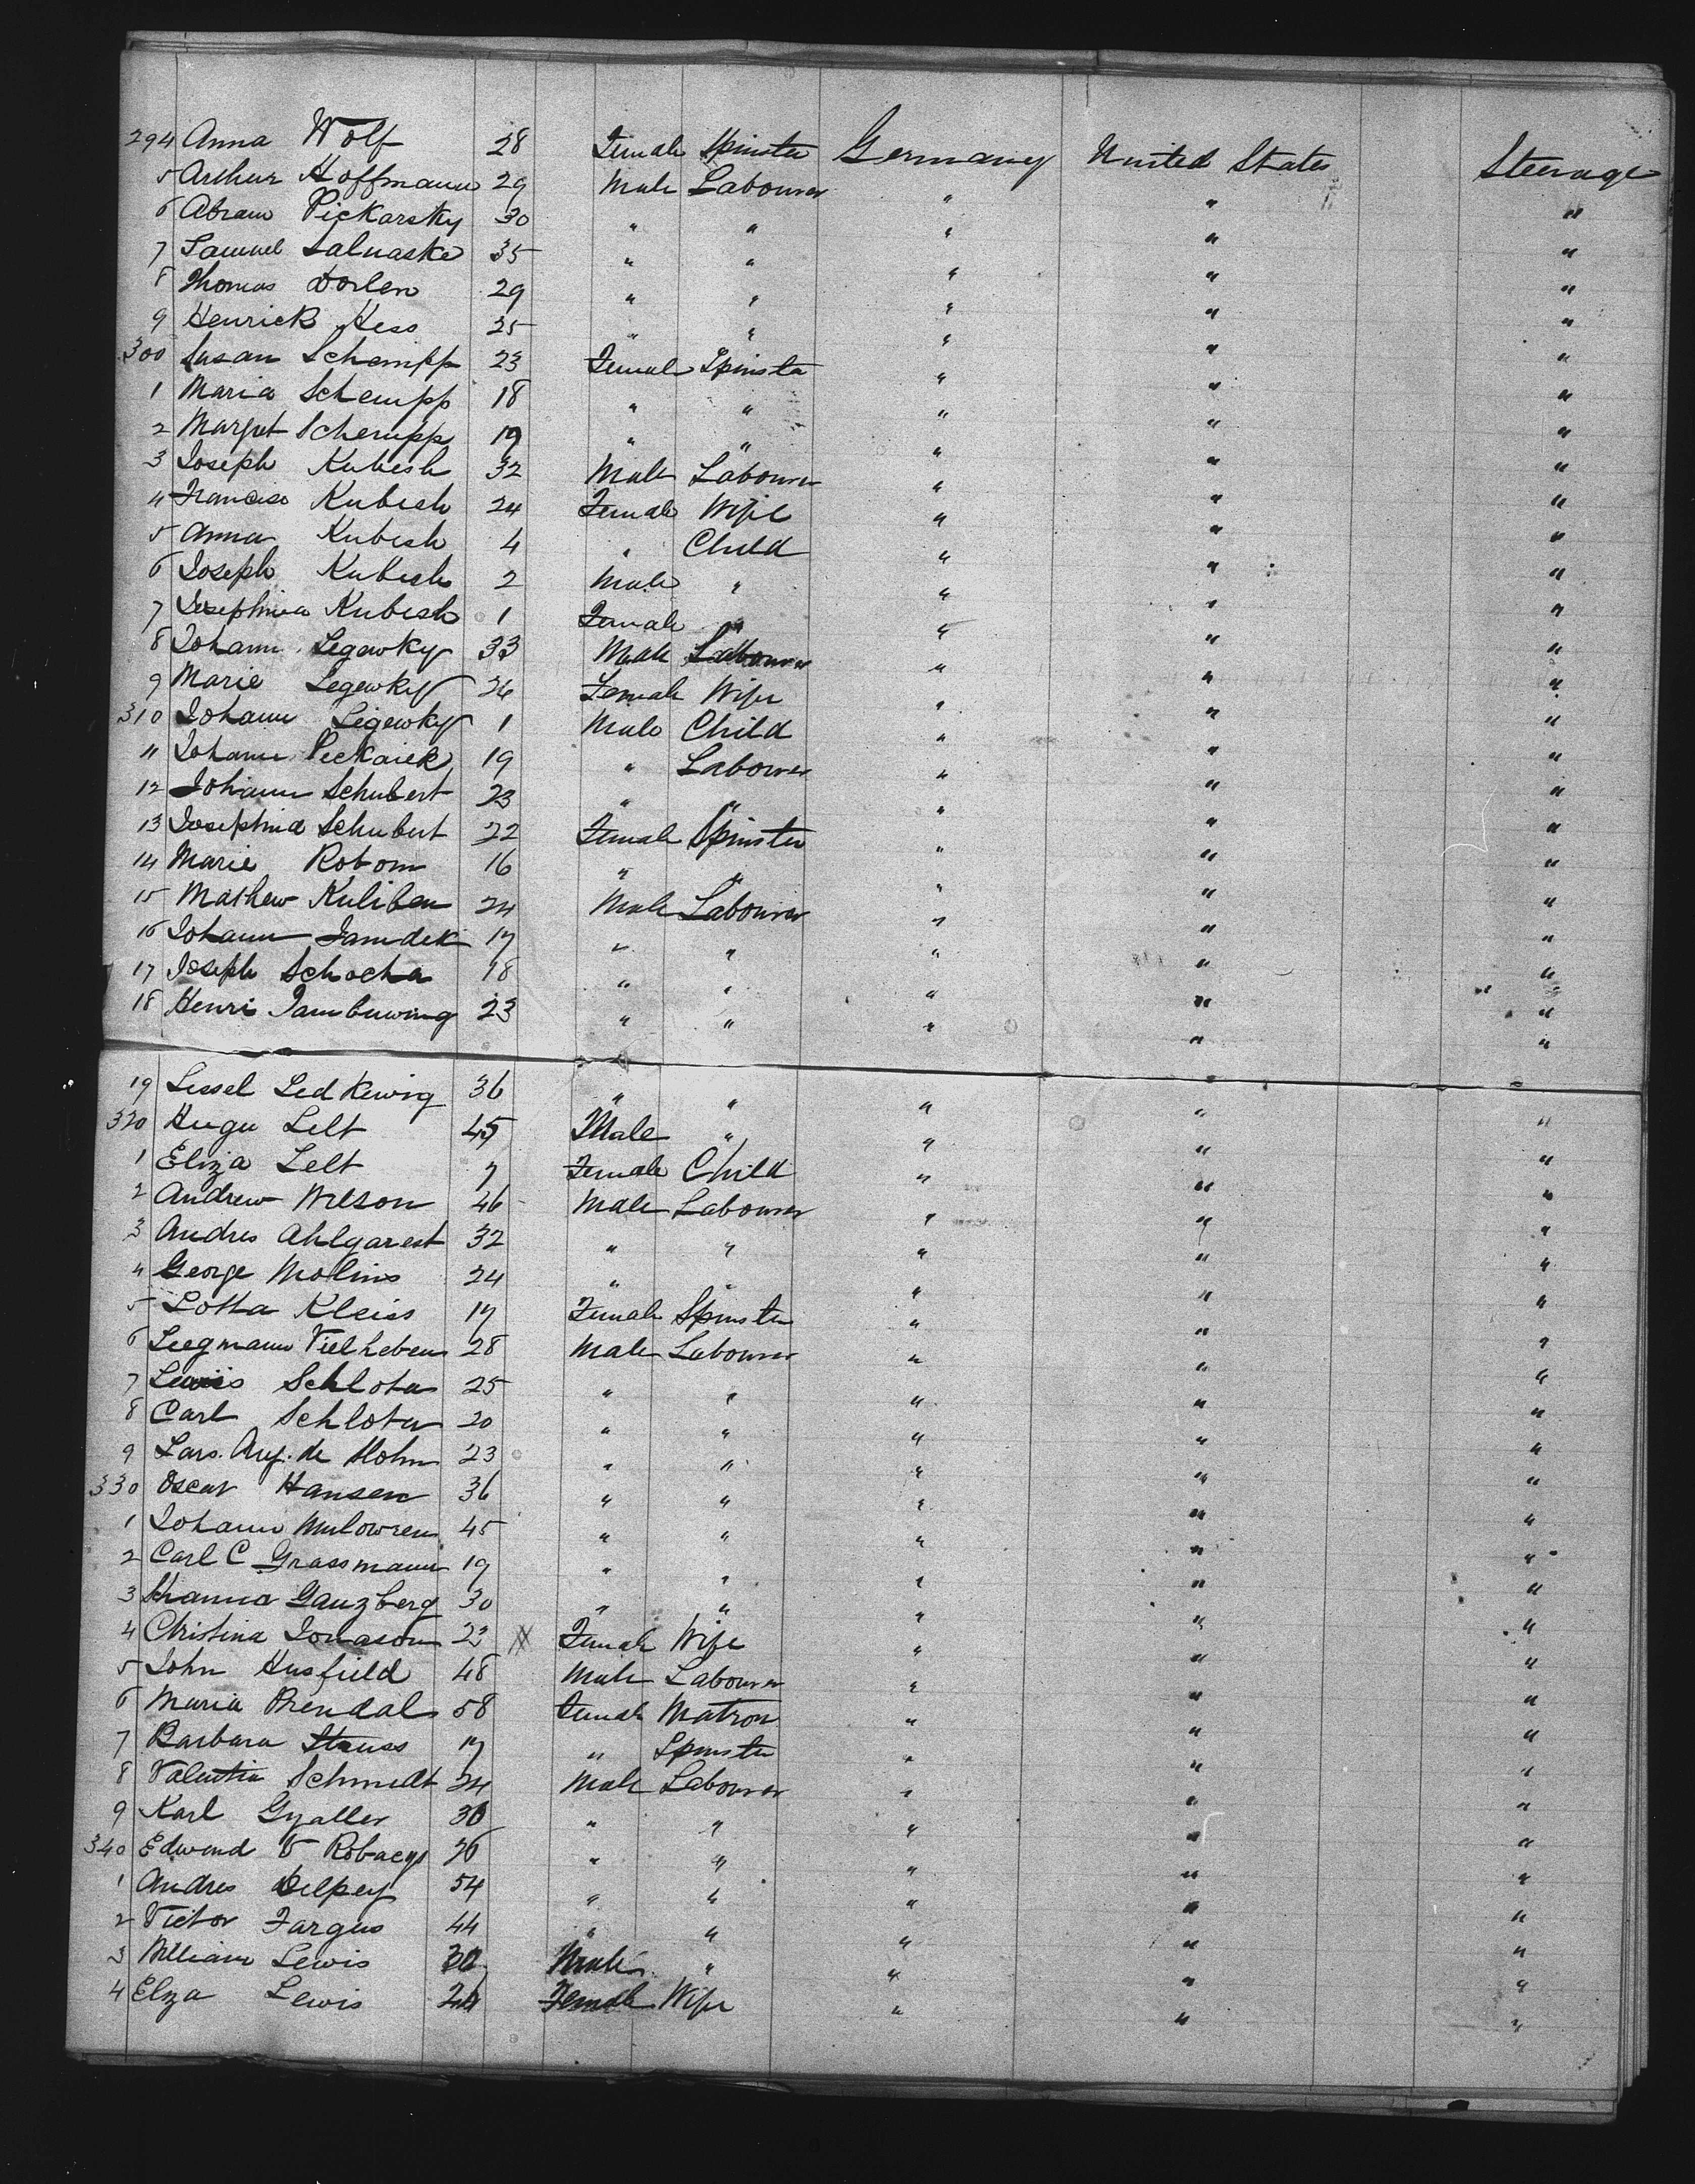 294 Anna Wolf 28 Female Spinster Germany United States Steerage
5 Arthur Hoffmann 29 Male Labourer " " "
6 Abram Pickarsky 30 " " " " "
7 Samuel Saluaske 35 " " " " "
8 Thomas Dorlen 29 " " " " "
9 Henrick Hess 25 " " " " "
300 Susan Schempp 23 Female Spinster " " "
1 Maria Schempp 18 " " " " "
2 Margret Schempp 19 " " " " "
3 Joseph Kubesh 32 Male Labourer " " "
4 Francisca Kubesh 24 Female Wife " " "
5 Anna Kubesh 4 " Child " " "
6 Joseph Kubesh 2 Male " " " "
7 Josephina Kubesh 1 Female " " " "
8 Johann Legewky 33 Male Labourer " " "
9 Marie Legewky 26 Female Wife " " "
310 Johann Legewky 1 Male Child " " "
11 Johann Peckarek 19 " Labourer " " "
12 Johann Schubert 23 " " " " "
13 Josephina Schubert 22 Female Spinster " " "
14 Marie Robom 16 " " " " "
15 Mathew Kuliben 24 Male Labourer " " "
16 Johann Jamdek 17 " " " " "
17 Joseph Schocha 18 " " " " "
18 Henri 23 " " " " "
19 Lessel Ledkewig 36 " " " " "
320 Hugu Lelt 45 Male " " " "
1 Eliza Lelt 7 Female Child " " "
2 Andrew Wilson 46 Male Labourer " " "
3 Andres Ahlgarest 32 " " " " "
4 George Molins 24 " " " " "
5 Lotta Kleiss 17 Female Spinster " " "
6 Leegmann Vielheben 28 Male Labourer " " "
7 Lewis Schlota 25 " " " " "
8 Carl Schlota 20 " " " " "
9 Lars. Aug. de Hohn 23 " " " " "
330 Oscar Hansen 36 " " " " "
1 Johann Mulowren 45 " " " " "
2 Carl C Grassmann 19 " " " " "
3 Ganzberg 30 " " " " "
4 Christina Jonason 23 X Female Wife " " "
5 John Husfield 48 Male Labourer " " "
6 Maria Prendal 58 Female Matron " " "
7 Barbara Strauss 17 " Spinster " " "
8 Valentin Schmidt 24 Male Labourer " " "
9 Karl Gyaller 36 " " " " "
340 Edwend V Robaeys 26 " " " " "
1 Andres Delpey 54 " " " " "
2 Victor Fargus 44 " " " " "
3 William Lewis 30 Male " " " "
4 Elza Lewis 24 Female Wife " " "